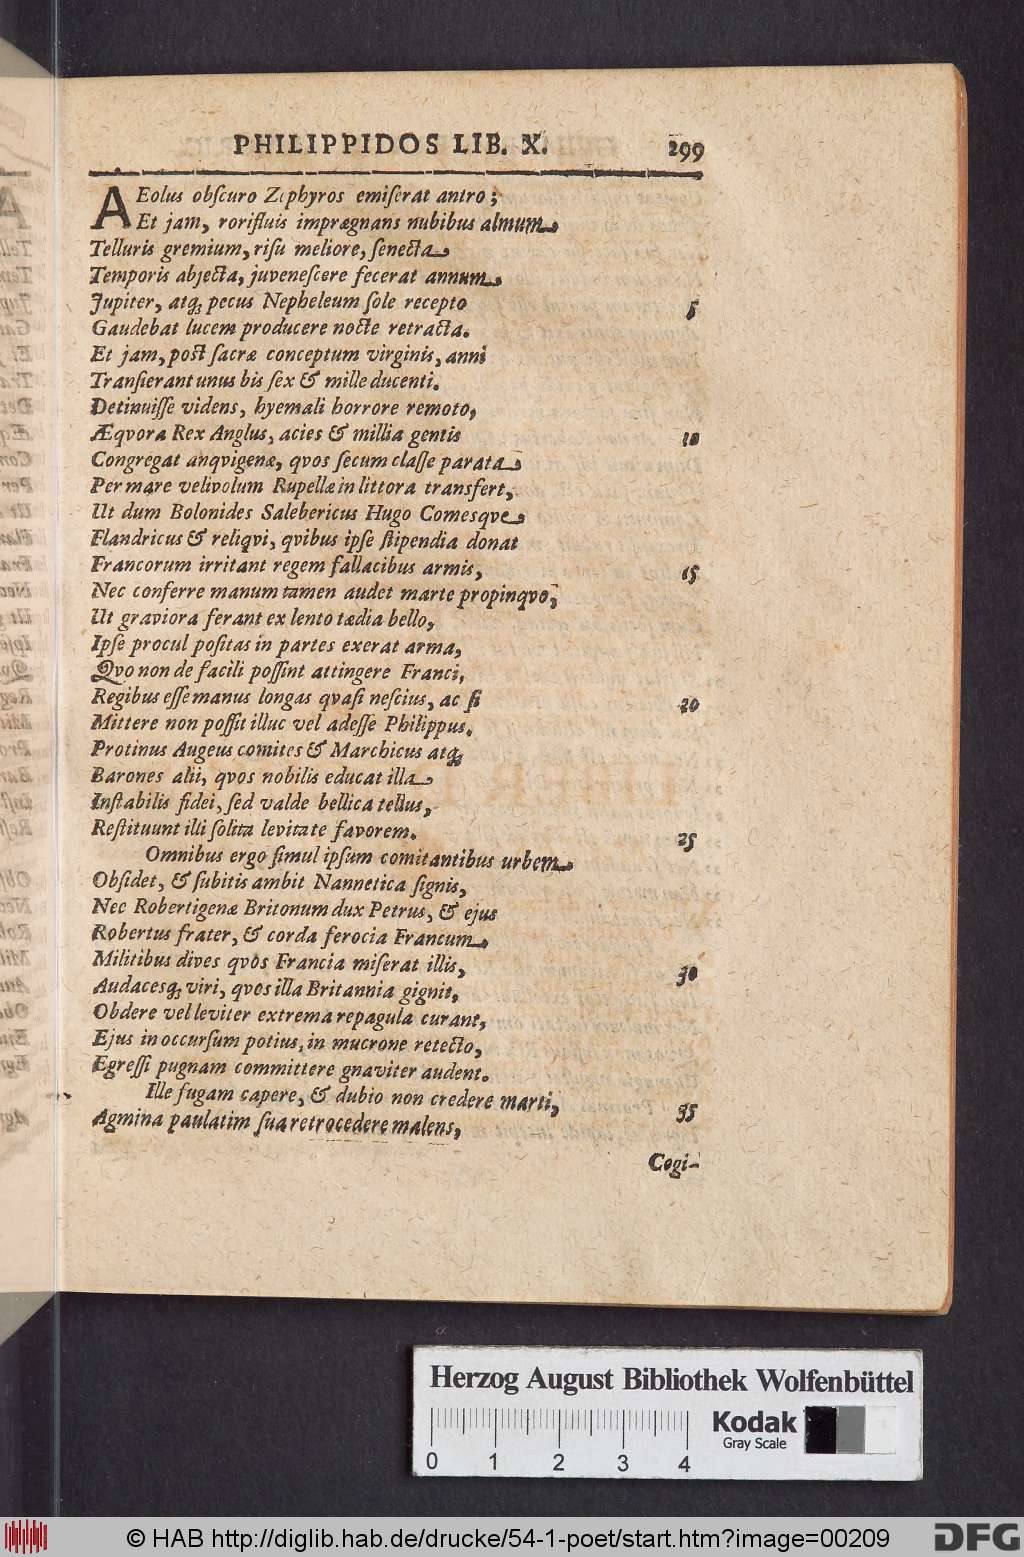 PHILIPPIDOS LIB. X. 299
AEolus obſcuro Zephyros emiſerat antro;
Et jam, rorifluis imprægnans nubibus almum
Telluris gremium, riſu meliore, ſenecta
Temporis abjecta, juveneſcere fecerat annum
Jupiter, atq; pecus Nepheleum ſole recepto 5
Gaudebat lucem producere nocte retracta.
Et jam, poſt ſacræ conceptum virginis, anni
Tranſierant unus bis ſex & mille ducenti.
Detinuiſſe videns, hyemali horrore remoto,
Æqvora Rex Anglus, acies & millia gentis 10
Congregat anqvigenæ, qvos ſecum claſſe parata
Per mare velivolum Rupellæ in littora transfert,
Ut dum Bolonides Salebericus Hugo Comesqve
Flandricus & reliqvi, qvibus ipſe ſtipendia donat
Francorum irritant regem fallacibus armis, 15
Nec conferre manum tamen audet marte propinqvo,
Ut graviora ferant ex lento tædia bello,
Ipſe procul poſitas in partes exerat arma,
Qvo non de facili poſſint attingere Franci,
Regibus eſſe manus longas qvaſi neſcius, ac ſi 20
Mittere non poſſit illuc vel adeſſe Philippus.
Protinus Augeus comites & Marchicus atq;
Barones alii, qvos nobilis educat illa
Inſtabilis fidei, ſed valde bellica tellus,
Reſtituunt illi ſolita levitate favorem. 25
Omnibus ergo ſimul ipſum comitantibus urbem
Obſidet, & ſubitis ambit Nannetica ſignis,
Nec Robertigenæ Britonum dux Petrus, & ejus
Robertus frater, & corda ferocia Francum
Militibus dives qvòs Francia miſerat illis, 30
Audacesq; viri, qvos illa Britannia gignit,
Obdere vel leviter extrema repagula curant,
Ejus in occurſum potius, in mucrone retecto,
Egreſſi pugnam committere gnaviter audent.
Ille fugam capere, & dubio non credere marti, 35
Agmina paulatim ſua retrocedere malens,
Cogi-
Herzog August Bibliothek Wolfenbüttel
Kodak
Gray Scale
0 1 2 3 4
© HAB http://diglib.hab.de/drucke/54-1-poet/start.htm?image=00209
DFG